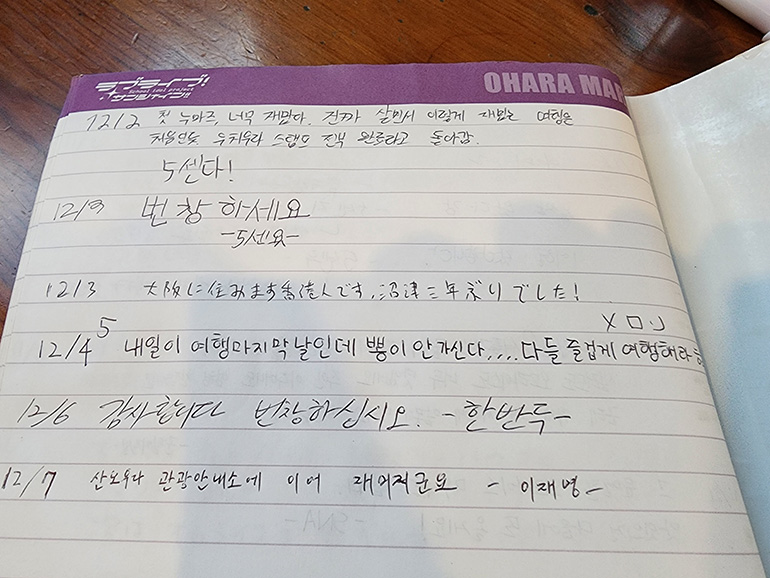 ラブライブ!
School idol project
サンシャイン!!
OHARA MAR
12/2 첫 누마즈, 너무 재밌다. 진짜 살면서 이렇게 재밌는 여행은
처음인듯 우치우라 스탬프 전부 완료하고 돌아감.
5센다!
12/3 번창하세요
-5센요-
12/3 大阪に住みます香港人です,沼津三年ぶりでした!
12/4 5 내일이 여행마지막날인데 뽕이 안가신다....다들 즐겁게 여행해라
12/6 감사합니다 번창하십시오. -한반득-
12/7 관광안내소에 이어 재미져군요 - 이재영-
-SNA-